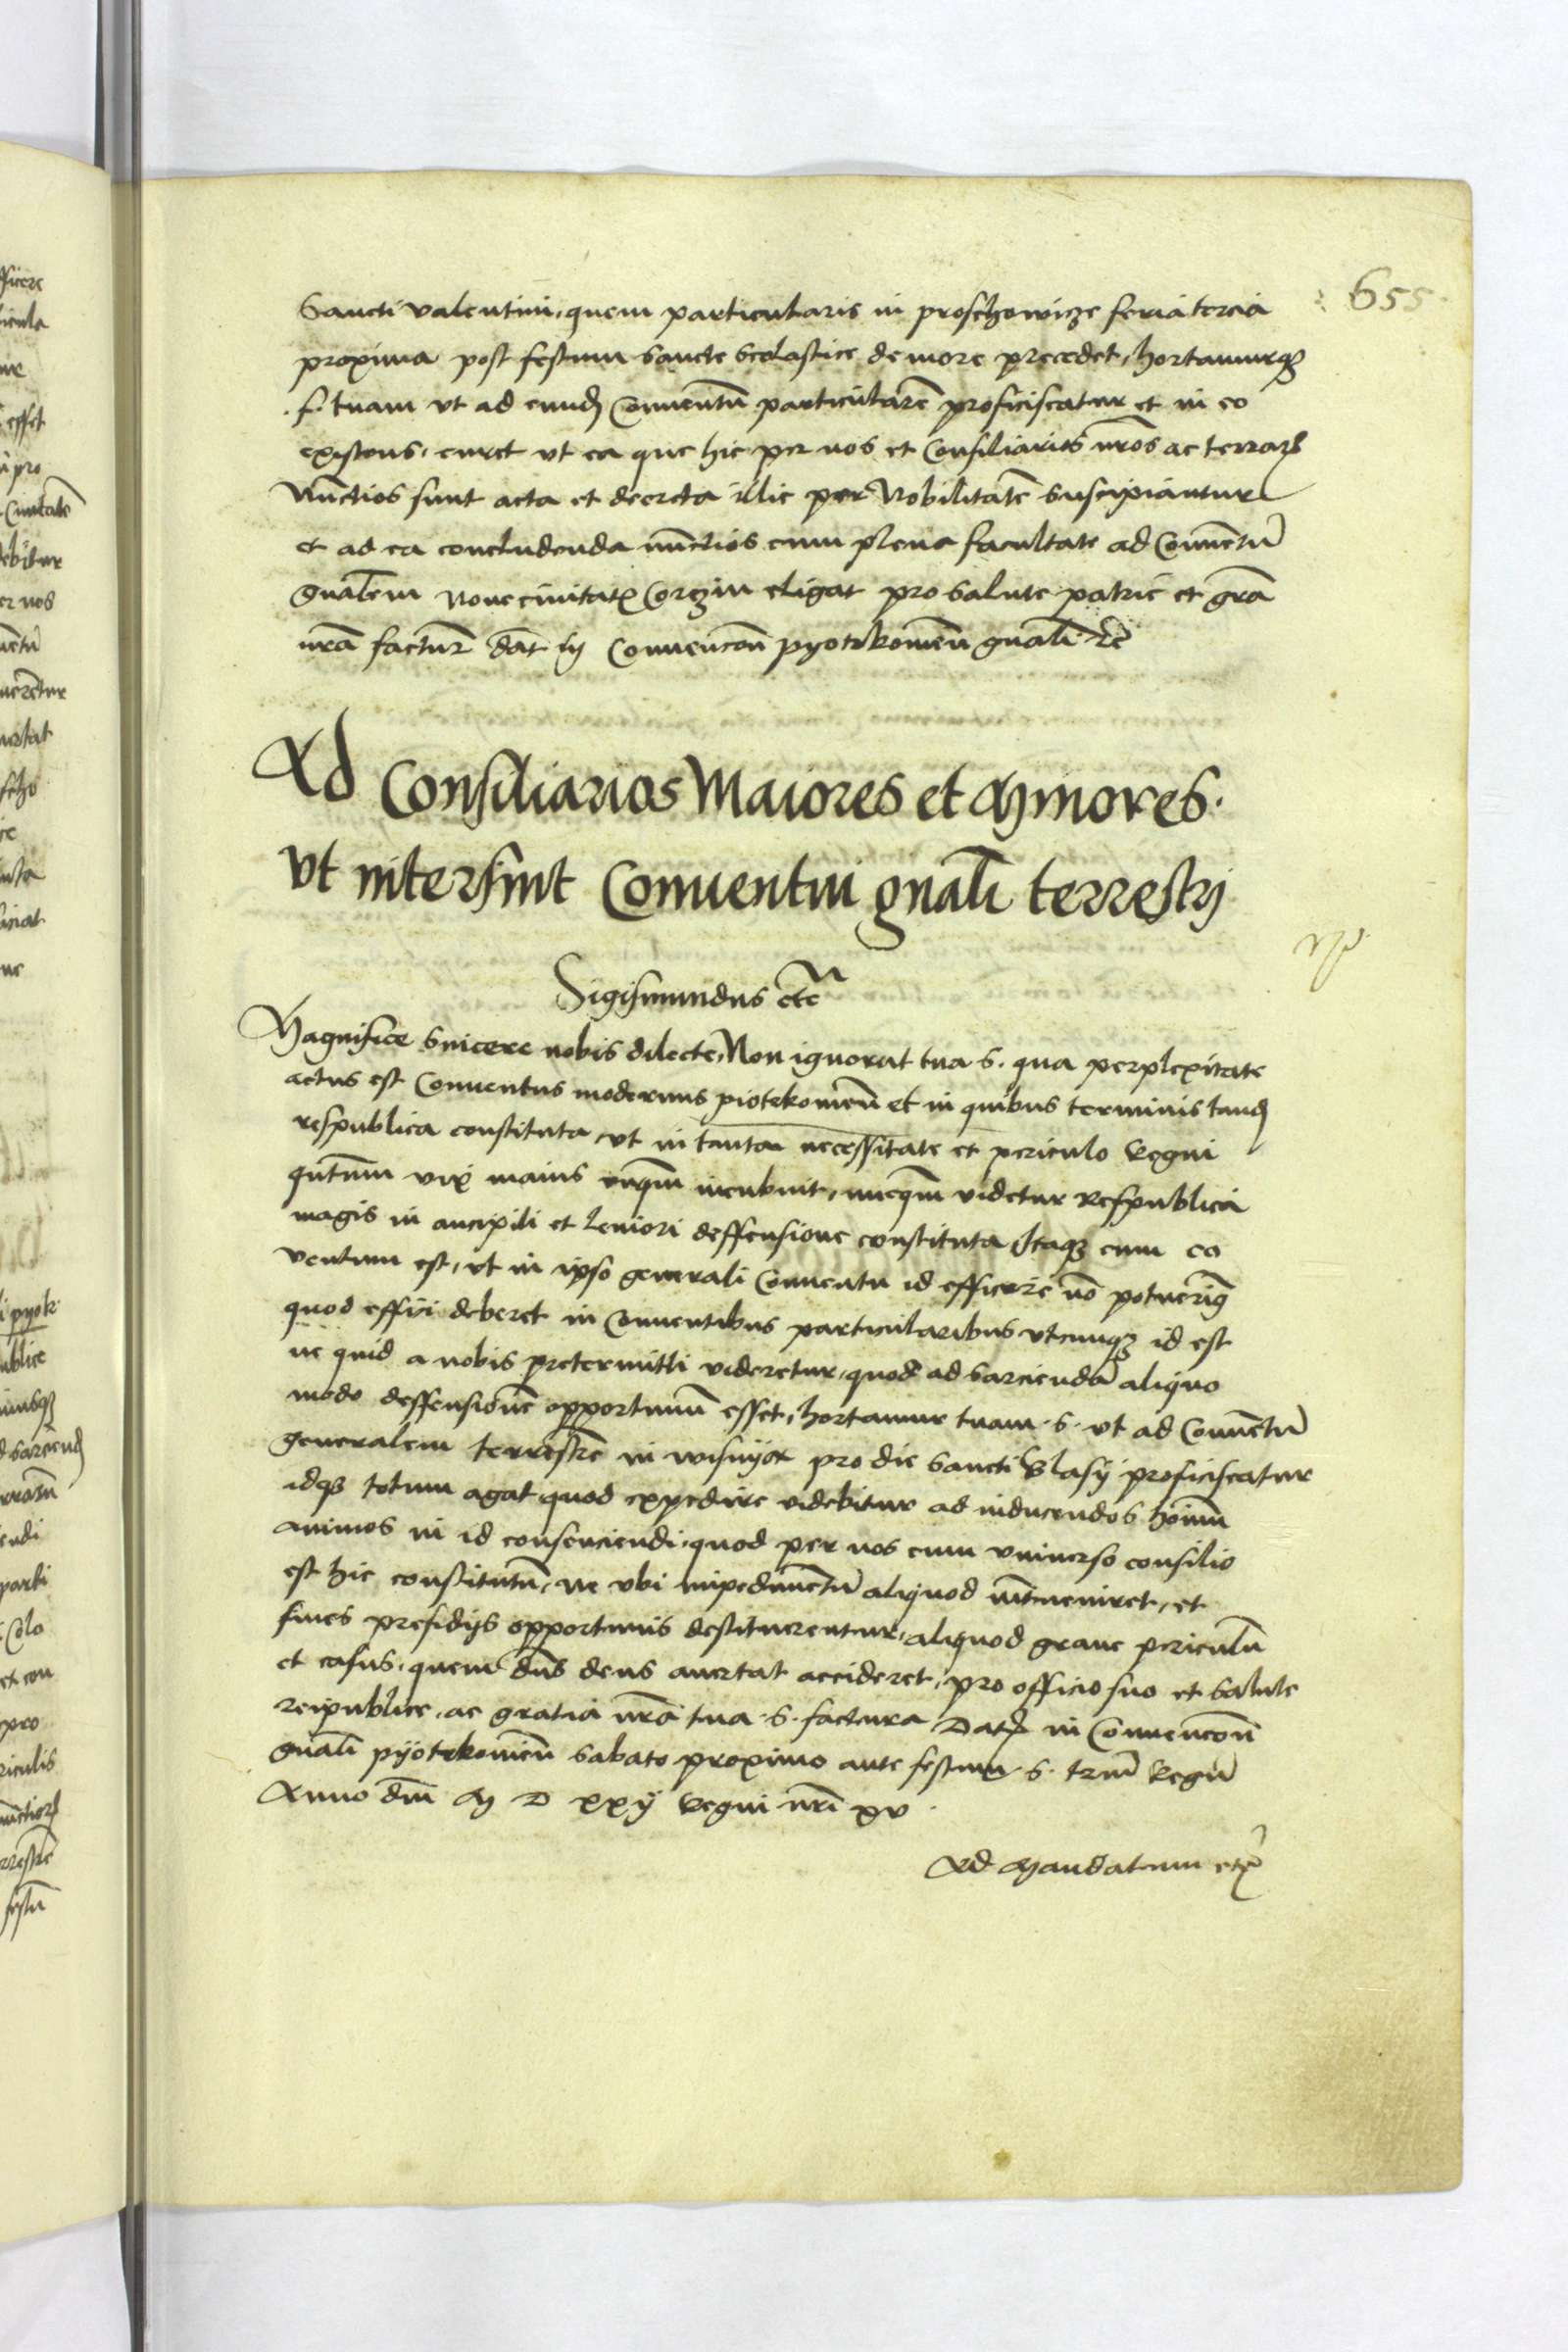 655
Sancti Valentini, quem particularis in proschowicze feria tercia
proxima post festum sancte scolastice de more precedet, hortamurq3
.f. tuam vt ad eund Conuentū particularē proficiscatur et in eo
existens, curet vt ea que hic per nos et Consiliarios nr̄os ac terrar
Nunctios sunt acta et decreta illic per Nobilitatē suscipiantur
et ad ea concludenda nunctios cum plena facultate ad Conuentū
gnālem Noue ciuitatꝭ Corczin eligat pro salute patrie et grā
nrā factur dat̄ In Conuencōn pyotrkowień gnāli rē
Ad Consiliarios Maiores et Minores.
vt intersint Conuentui gnāli terrestrj
Sigismundus etc̄
Magnifice sincere nobis dilecte, Non ignorat tua s. qua perplexitate
actus est Conuentus modernus piotrkowień et in quibus terminis tand
respublica constituta, vt in tanta necessitate et periculo Regni
qn̄tum vix maius vnqm̄ incubuit, nucqm̄ videtur Respublica
magis in ancipiti et leuiori deffensione constituta Itaq3 cum eo
ventum est, vt in ipso generali Conuentu id efficere nō potuerit
quod effici deberet in Conuentibus particularibus vtcunq3 id est
ne quid a nobis pretermitti videretur, quod ad sarciendā aliquo
modo deffensionē opportunū esset, hortamur tuam .s. vt ad Conuentū
generalem terrestrē in wisnya pro die sancti Blasij proficiscatur
idq3 totum agat quod expedire videbitur ad inducendos hoīm
animos in id consenciendi, quod per nos cum vniuerso consilio
est hic constitutū, ne vbi impedimentū aliquod interueniret, et
fines presidijs opportunis destituerentur, aliquod graue periculū
et casus, quem dn̄s deus auertat accideret, pro officio suo et salute
reipublice, ac gratia nrā tua .s. factura Datꝭ in Conuencōn
gnāli pyotrkowień sabato proximo ante festum .s. triū Regū
Anno dn̄i M D xxij Regni nr̄i xv.
Ad Mandatum etc̄